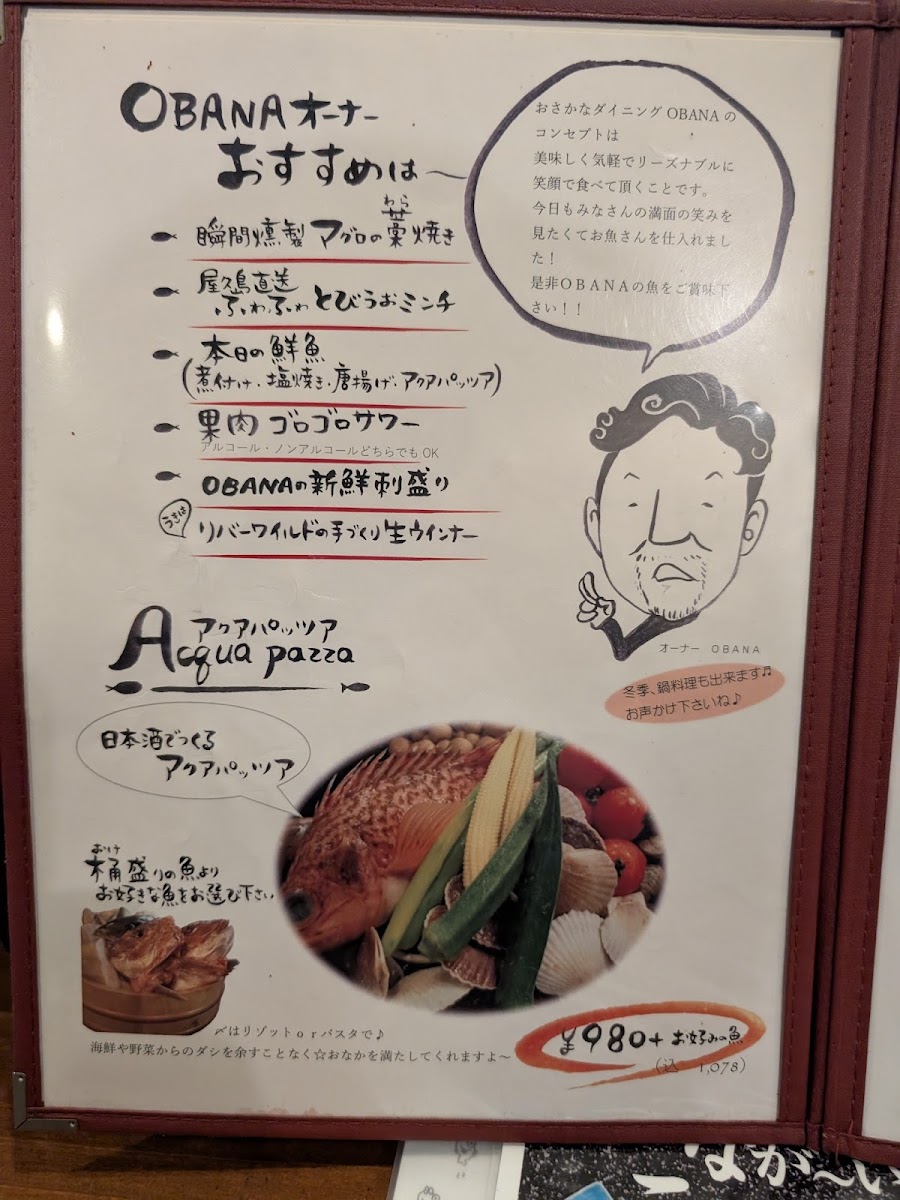 OBANAオーナー
おすすめは～
瞬間燻製 マグロの藁焼き
わら
屋久島直送
ふわふわ とびうおミンチ
本日の鮮魚
(煮付け・塩焼き・唐揚げ・アクアパッツア)
果肉 ゴロゴロサワー
アルコール・ノンアルコールどちらでもOK
OBANAの新鮮刺盛り
うきは
リバーワイルドの手づくり生ウインナー
おさかなダイニング OBANA の
コンセプトは
美味しく気軽でリーズナブルに
笑顔で食べて頂くことです。
今日もみなさんの満面の笑みを
見たくてお魚さんを仕入れまし
た！
是非ＯＢＡＮＡの魚をご賞味下
さい！！
オーナー　OBANA
冬季、鍋料理も出来ます♬
お声かけ下さいね♪
アクアパッツア
Acqua pazza
日本酒でつくる
アクアパッツア
おけ
桶盛りの魚より
お好きな魚をお選び下さい
〆はリゾットｏｒパスタで♪
海鮮や野菜からのダシを余すことなく☆おなかを満たしてくれますよ～
¥980+お好みの魚
(込 1,078)
なが～い